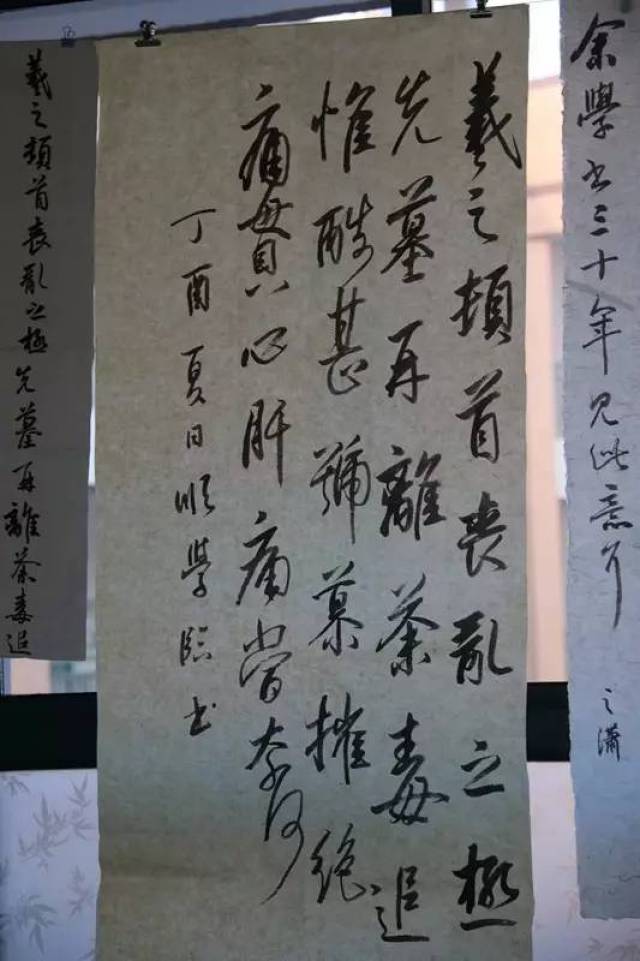 余學書三十年見此意
之瀟
羲之頓首喪亂之極
先墓再離荼毒追
惟酷甚號慕摧絶
痛貫心肝痛當奈何
丁酉夏日順學臨書
羲之頓首喪亂之極先墓再離荼毒追